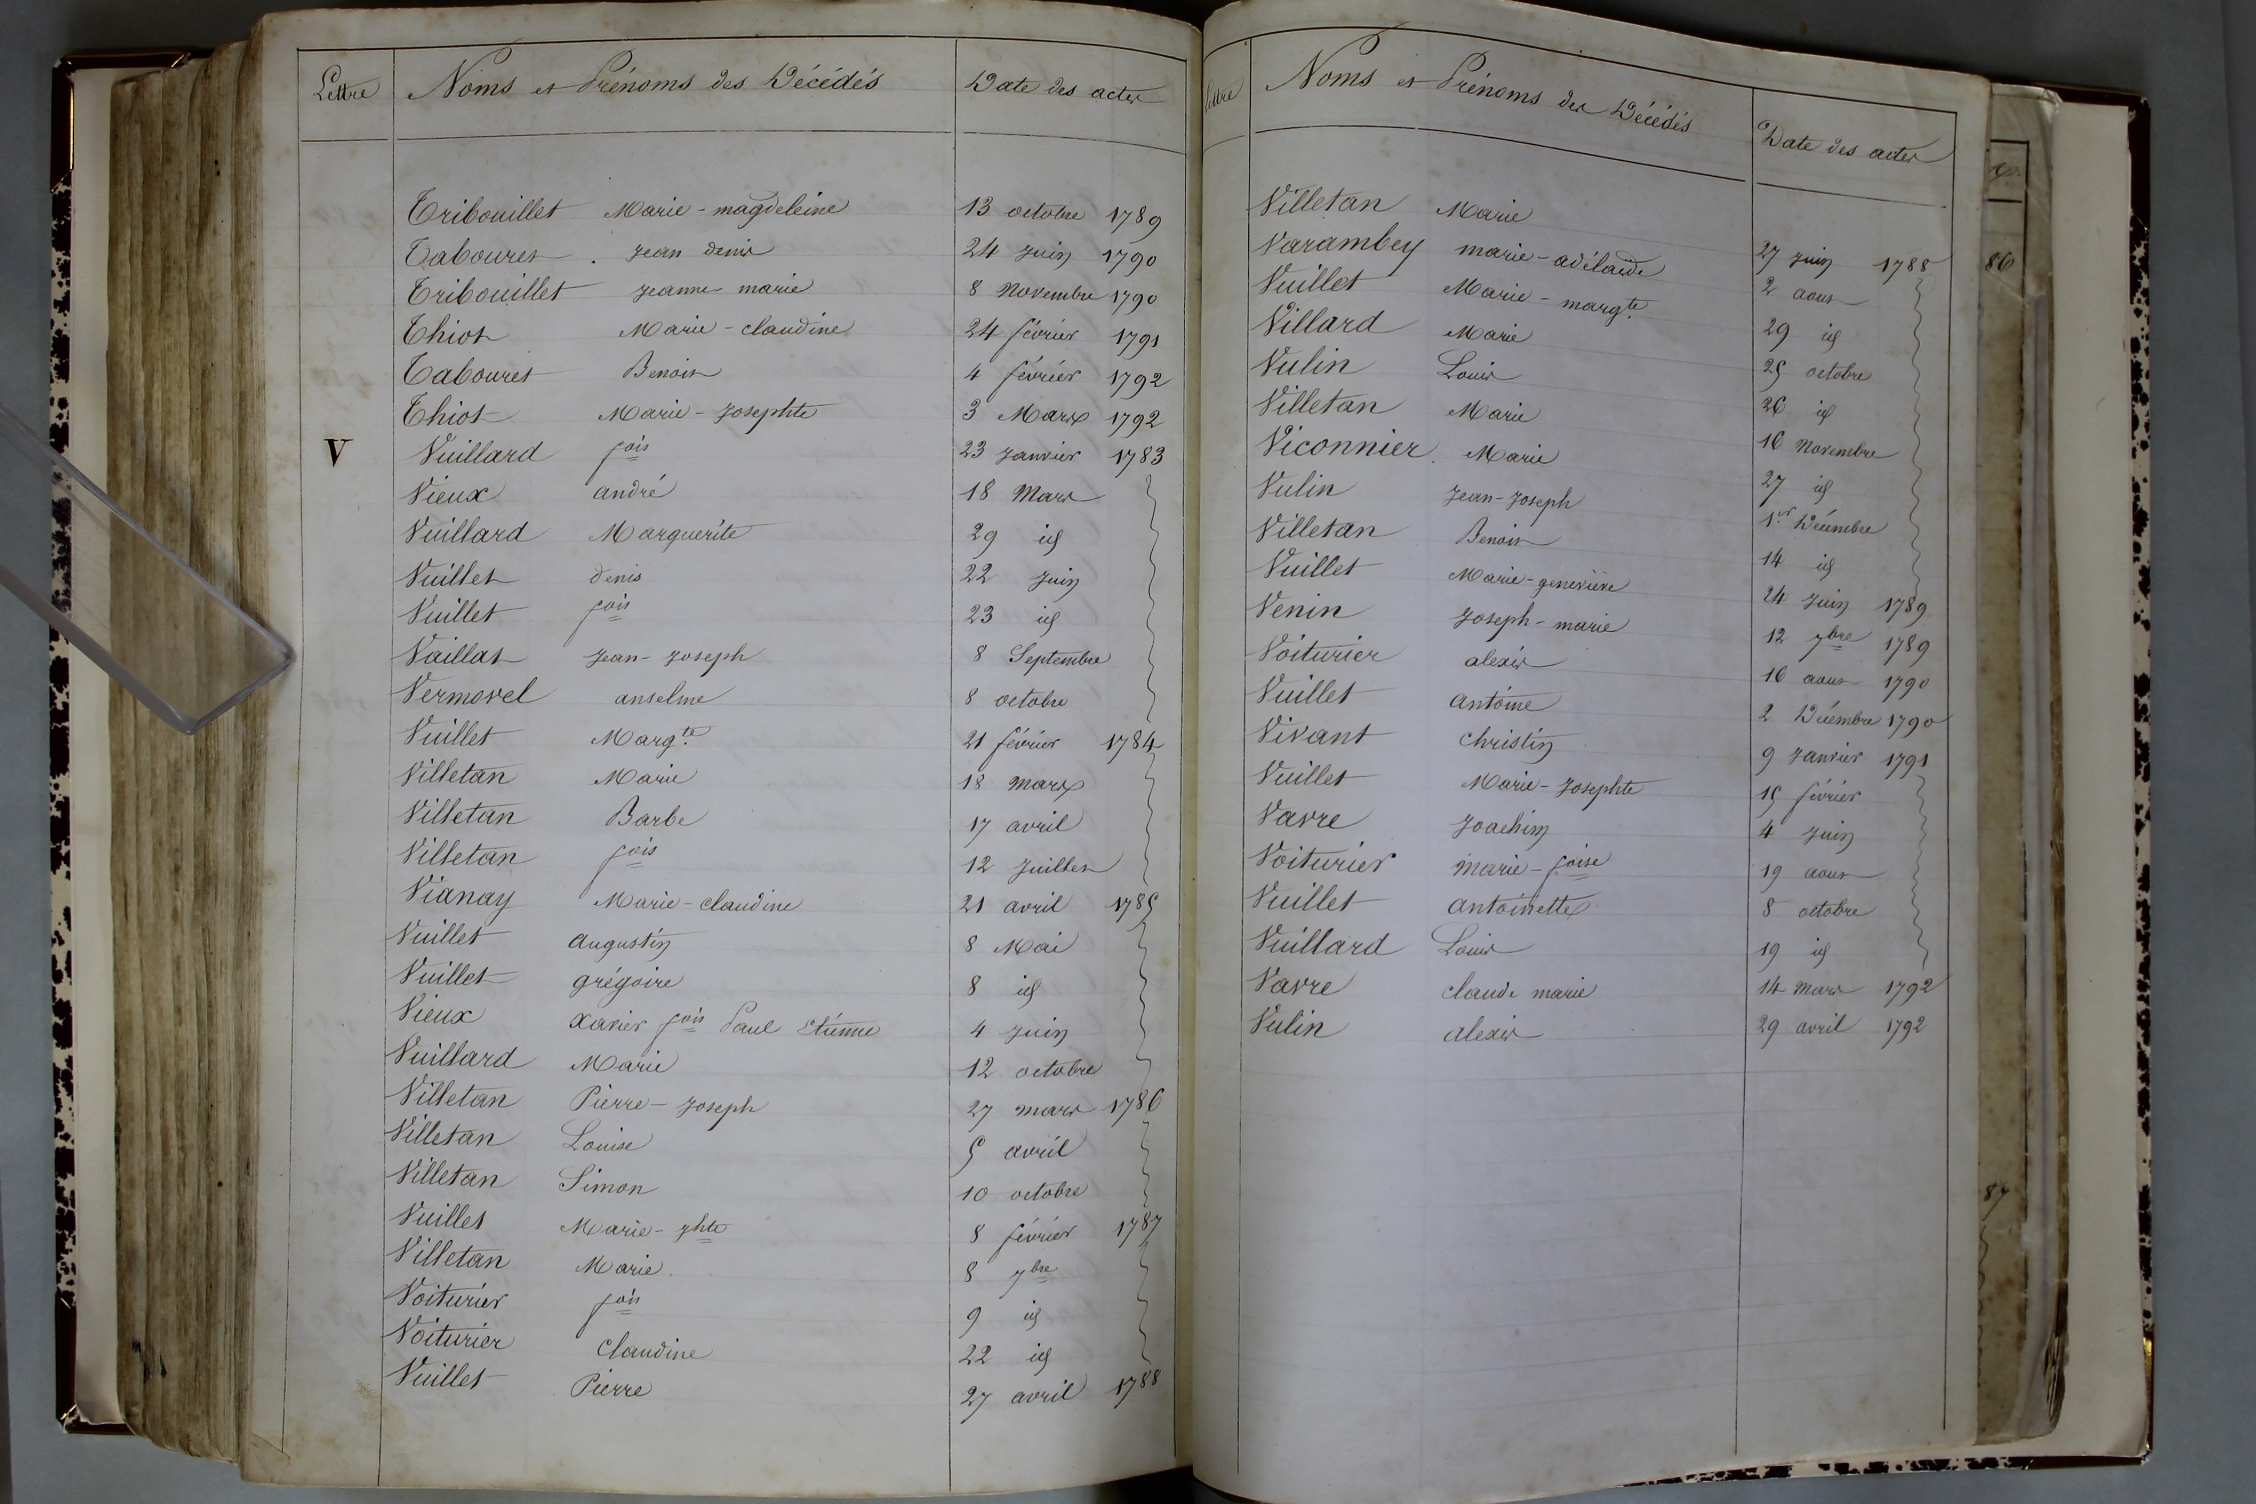 Lettre Noms et Prénoms des Décédés Date des actes
Tribouillet Marie-magdeleine 13 octobre 1789
Tabouret . Jean denis 24 Juin 1790
Tribouillet Jeanne-marie 8 Novembre 1790
Thiot Marie-claudine 24 février 1791
Tabouret Benoit 4 février 1792
Thiot Marie-Josephte 3 Mars 1792
V Vuillard fois 23 Janvier 1783
Vieux andré 18 Mars
Vuillard Marguerite 29 id
Vuillet denis 22 Juin
Vuillet fois 23 id
Vaillat Jean-Joseph 8 Septembre
Vermorel anselme 8 octobre
Vuillet Margte 21 février 1784
Villetan Marie 18 mars
Villetan Barbe 17 avril
Villetan fois 12 Juillet
Vianay Marie-claudine 21 avril 1785
Vuillet augustin 8 Mai
Vuillet grégoire 8 id
Vieux Xavier fois Paul Etienne 4 Juin
Vuillard Marie 12 octobre
Villetan Pierre-Joseph 27 mars 1786
Villetan Louise 5 avril
Villetan Simon 10 octobre
Vuillet Marie-Jhte 8 février 1787
Villetan Marie 8 7bre
Voiturier fois 9 id
Voiturier Claudine 22 id
Vuillet Pierre 27 avril 1788
Lettre Noms et Prénoms des Décédés Date des actes
Villetan Marie 27 Juin 1788
Varambey marie-adélaïde 2 aout
Vuillet Marie-margte 29 id
Villard Marie 25 octobre
Vulin Louis 26 id
Villetan Marie 16 Novembre
Viconnier Marie 27 id
Vulin Jean-Joseph 1er Décembre
Villetan Benoit 14 id
Vuillet Marie-geneviève 24 Juin 1789
Venin Joseph-marie 12 7bre 1789
Voiturier alexis 16 aout 1790
Vuillet antoine 2 Décembre 1790
Vivant Christin 9 Janvier 1791
Vuillet Marie-Josephte 15 février
Vavre Joachim 4 Juin
Voiturier Marie-foise 19 aout
Vuillet antoinette 8 octobre
Vuillard Louis 19 id
Vavre claude marie 14 Mars 1792
Vulin alexis 29 avril 1792
86
87